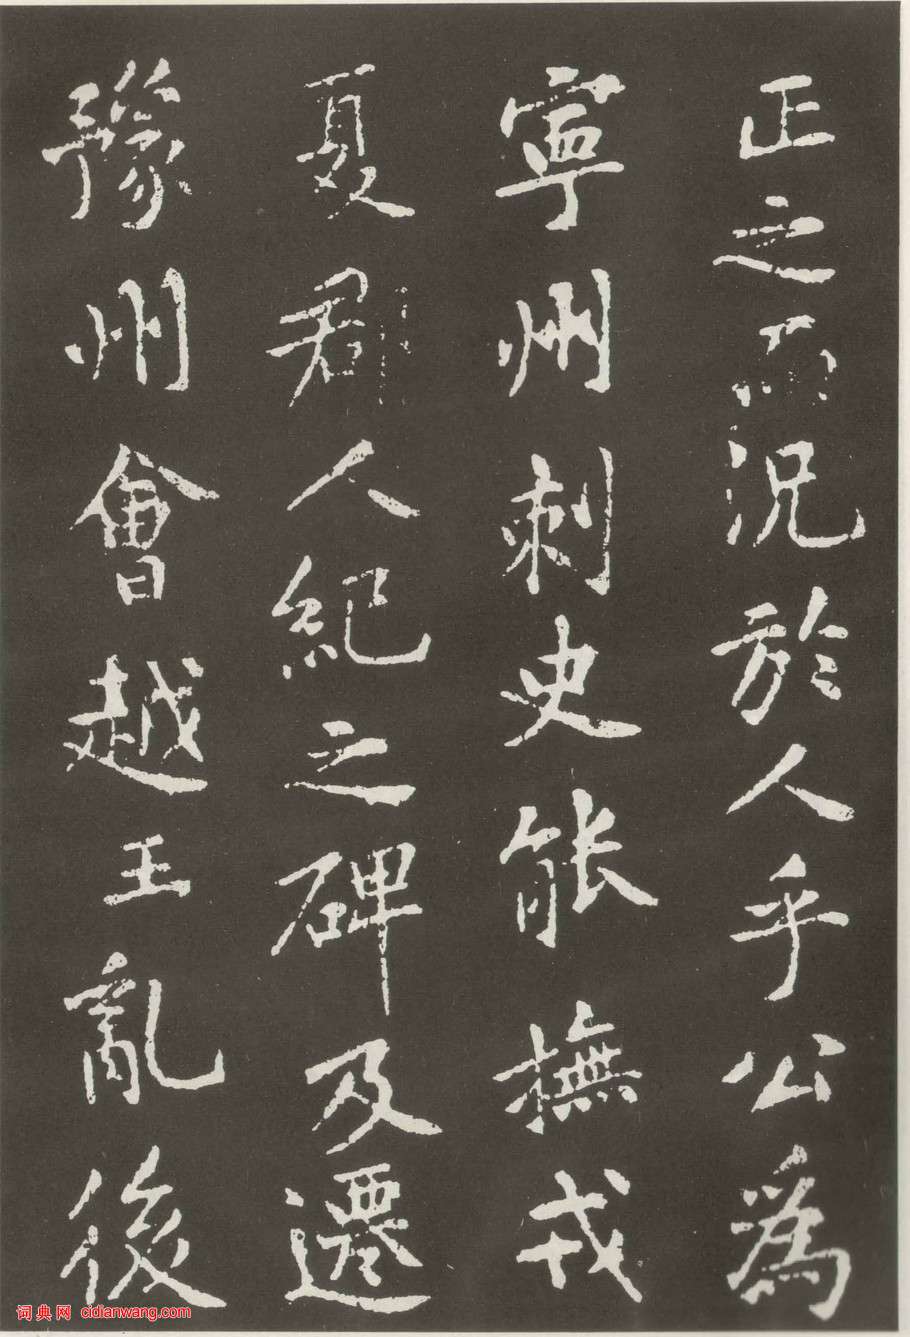 正之而況於人乎公為
寧州刺史能撫戎
夏郡人紀之碑及遷
豫州會越王亂後
词典网 cidianwang.com